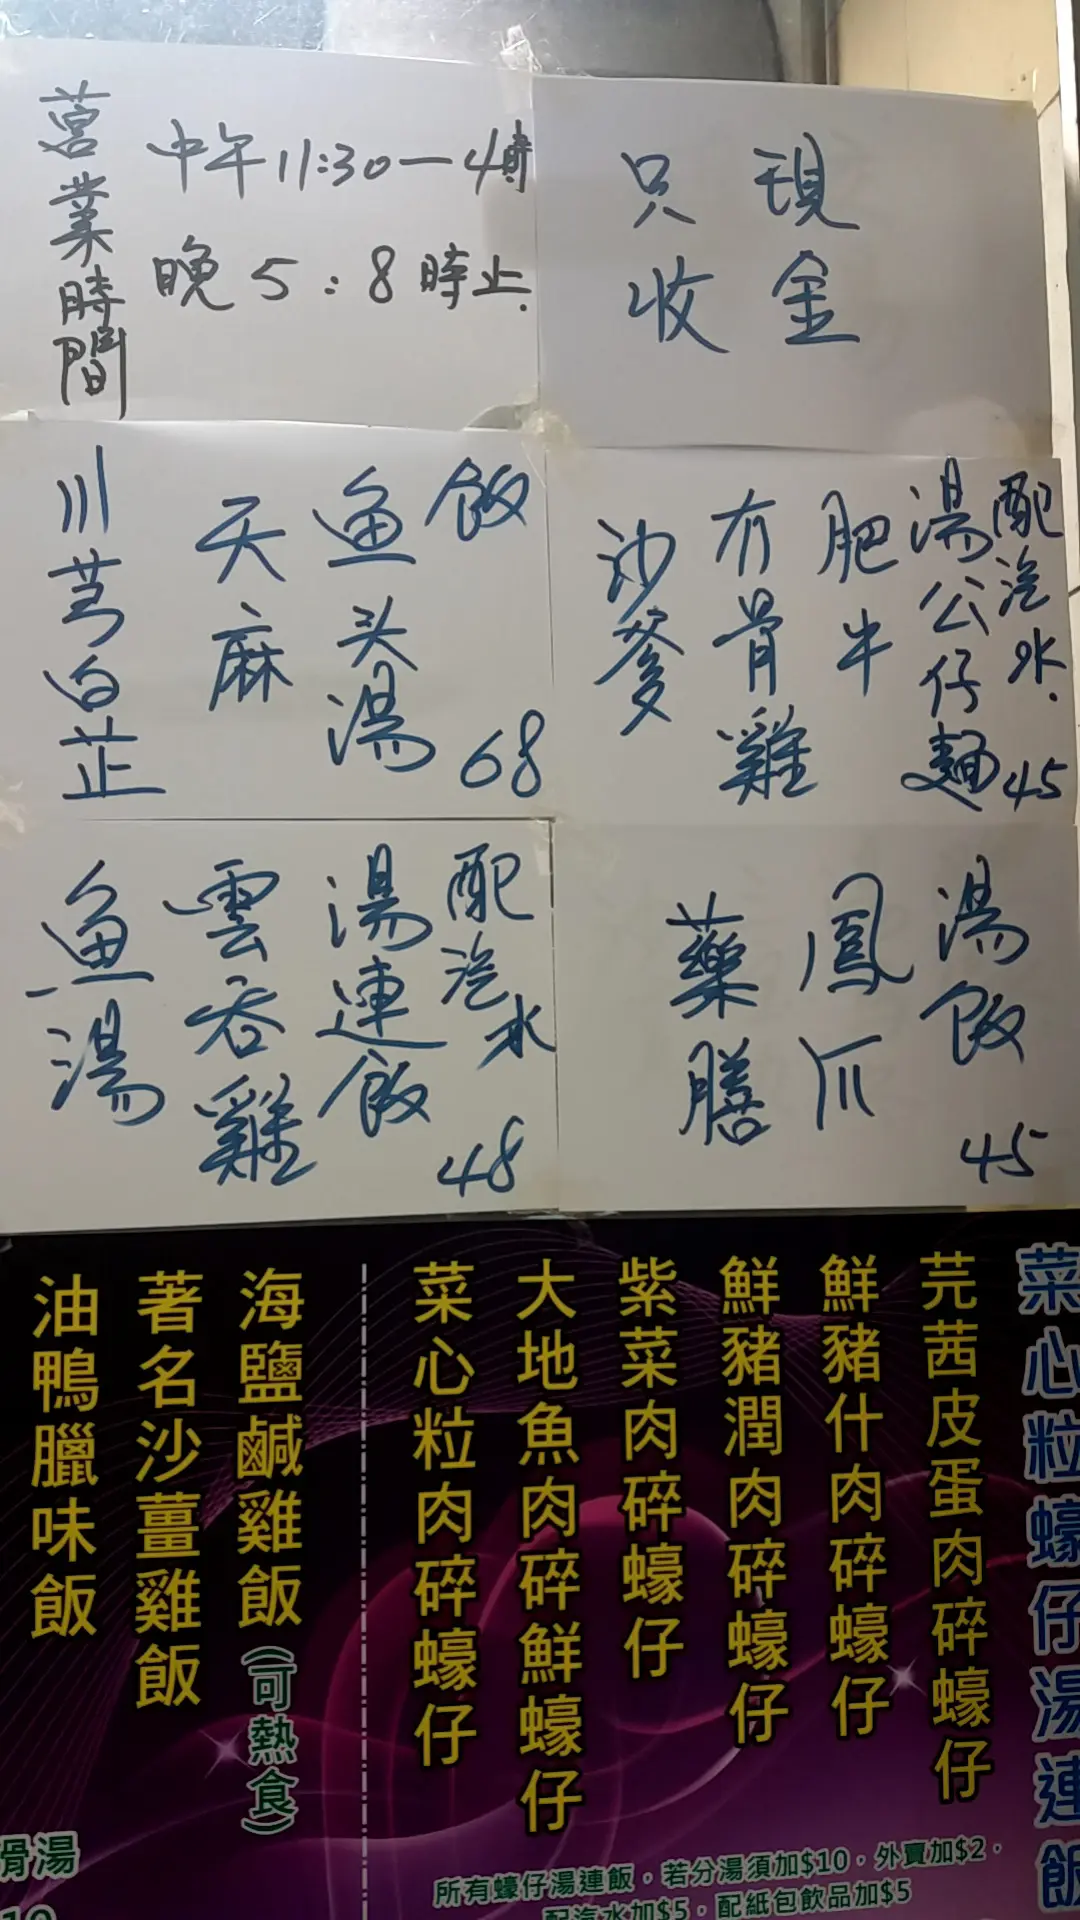 營業時間
中午11:30一4時
晚5:8時止.
只收
現金
川芎白芷
天麻
鱼头湯
飯
68
沙爹
冇骨雞
肥牛
湯公仔麵
配汽水.
45
鱼湯
雲吞雞
湯連飯
配汽水
48
藥膳
鳳爪
湯飯
45
菜心粒蠔仔湯連飯
芫茜皮蛋肉碎蠔仔
鮮豬什肉碎蠔仔
鮮豬潤肉碎蠔仔
紫菜肉碎蠔仔
大地魚肉碎鮮蠔仔
菜心粒肉碎蠔仔
海鹽鹹雞飯(可熱食)
著名沙薑雞飯
油鴨臘味飯
滑湯
所有蠔仔湯連飯，若分湯須加$10，外賣加$2，
配汽水加$5，配紙包飲品加$5